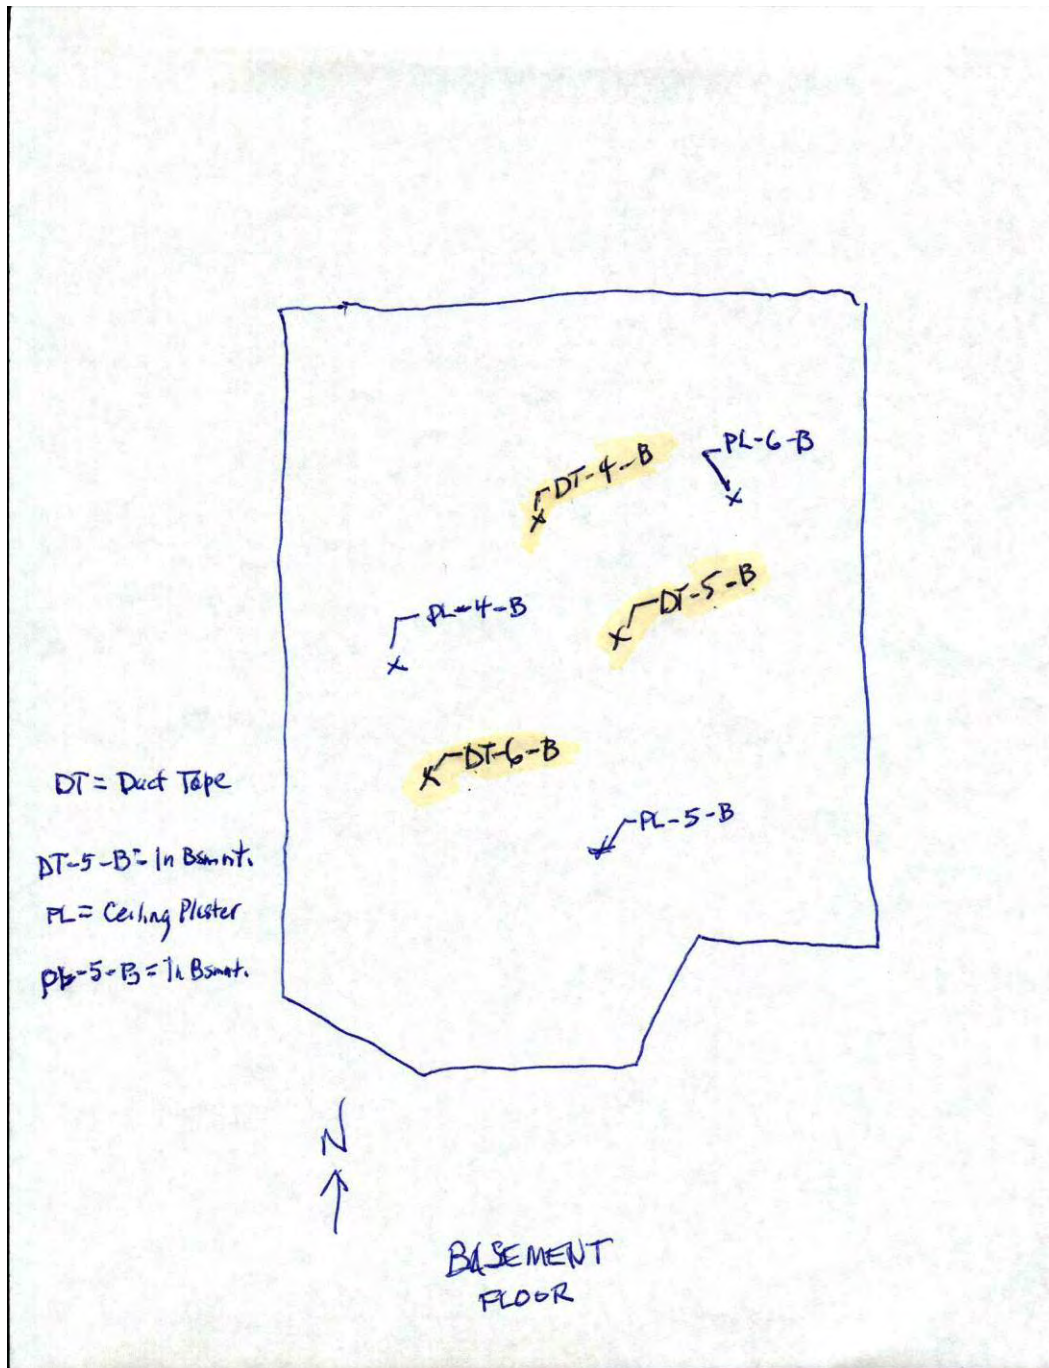 PL-6-B
DT-4-B
DT-5-B
PL-4-B
DT-6-B
PL-5-B
DT = Duct Tape
DT-5-B = In Bsmnt.
PL = Ceiling Plaster
PL-5-B = In Bsmnt.
N
BASEMENT
FLOOR